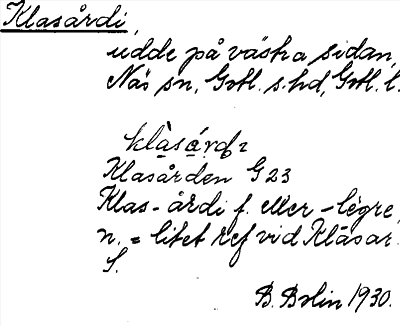 Klasårdi,
udde på västra sidan,
Näs sn, Gotl. s. hd, Gotl. l.
klàsárdɩ
Klasården G 23
Klas-årdi f. eller -lègre,
n. = litet ref vid Klasar.
S.
B. Bolin 1930.